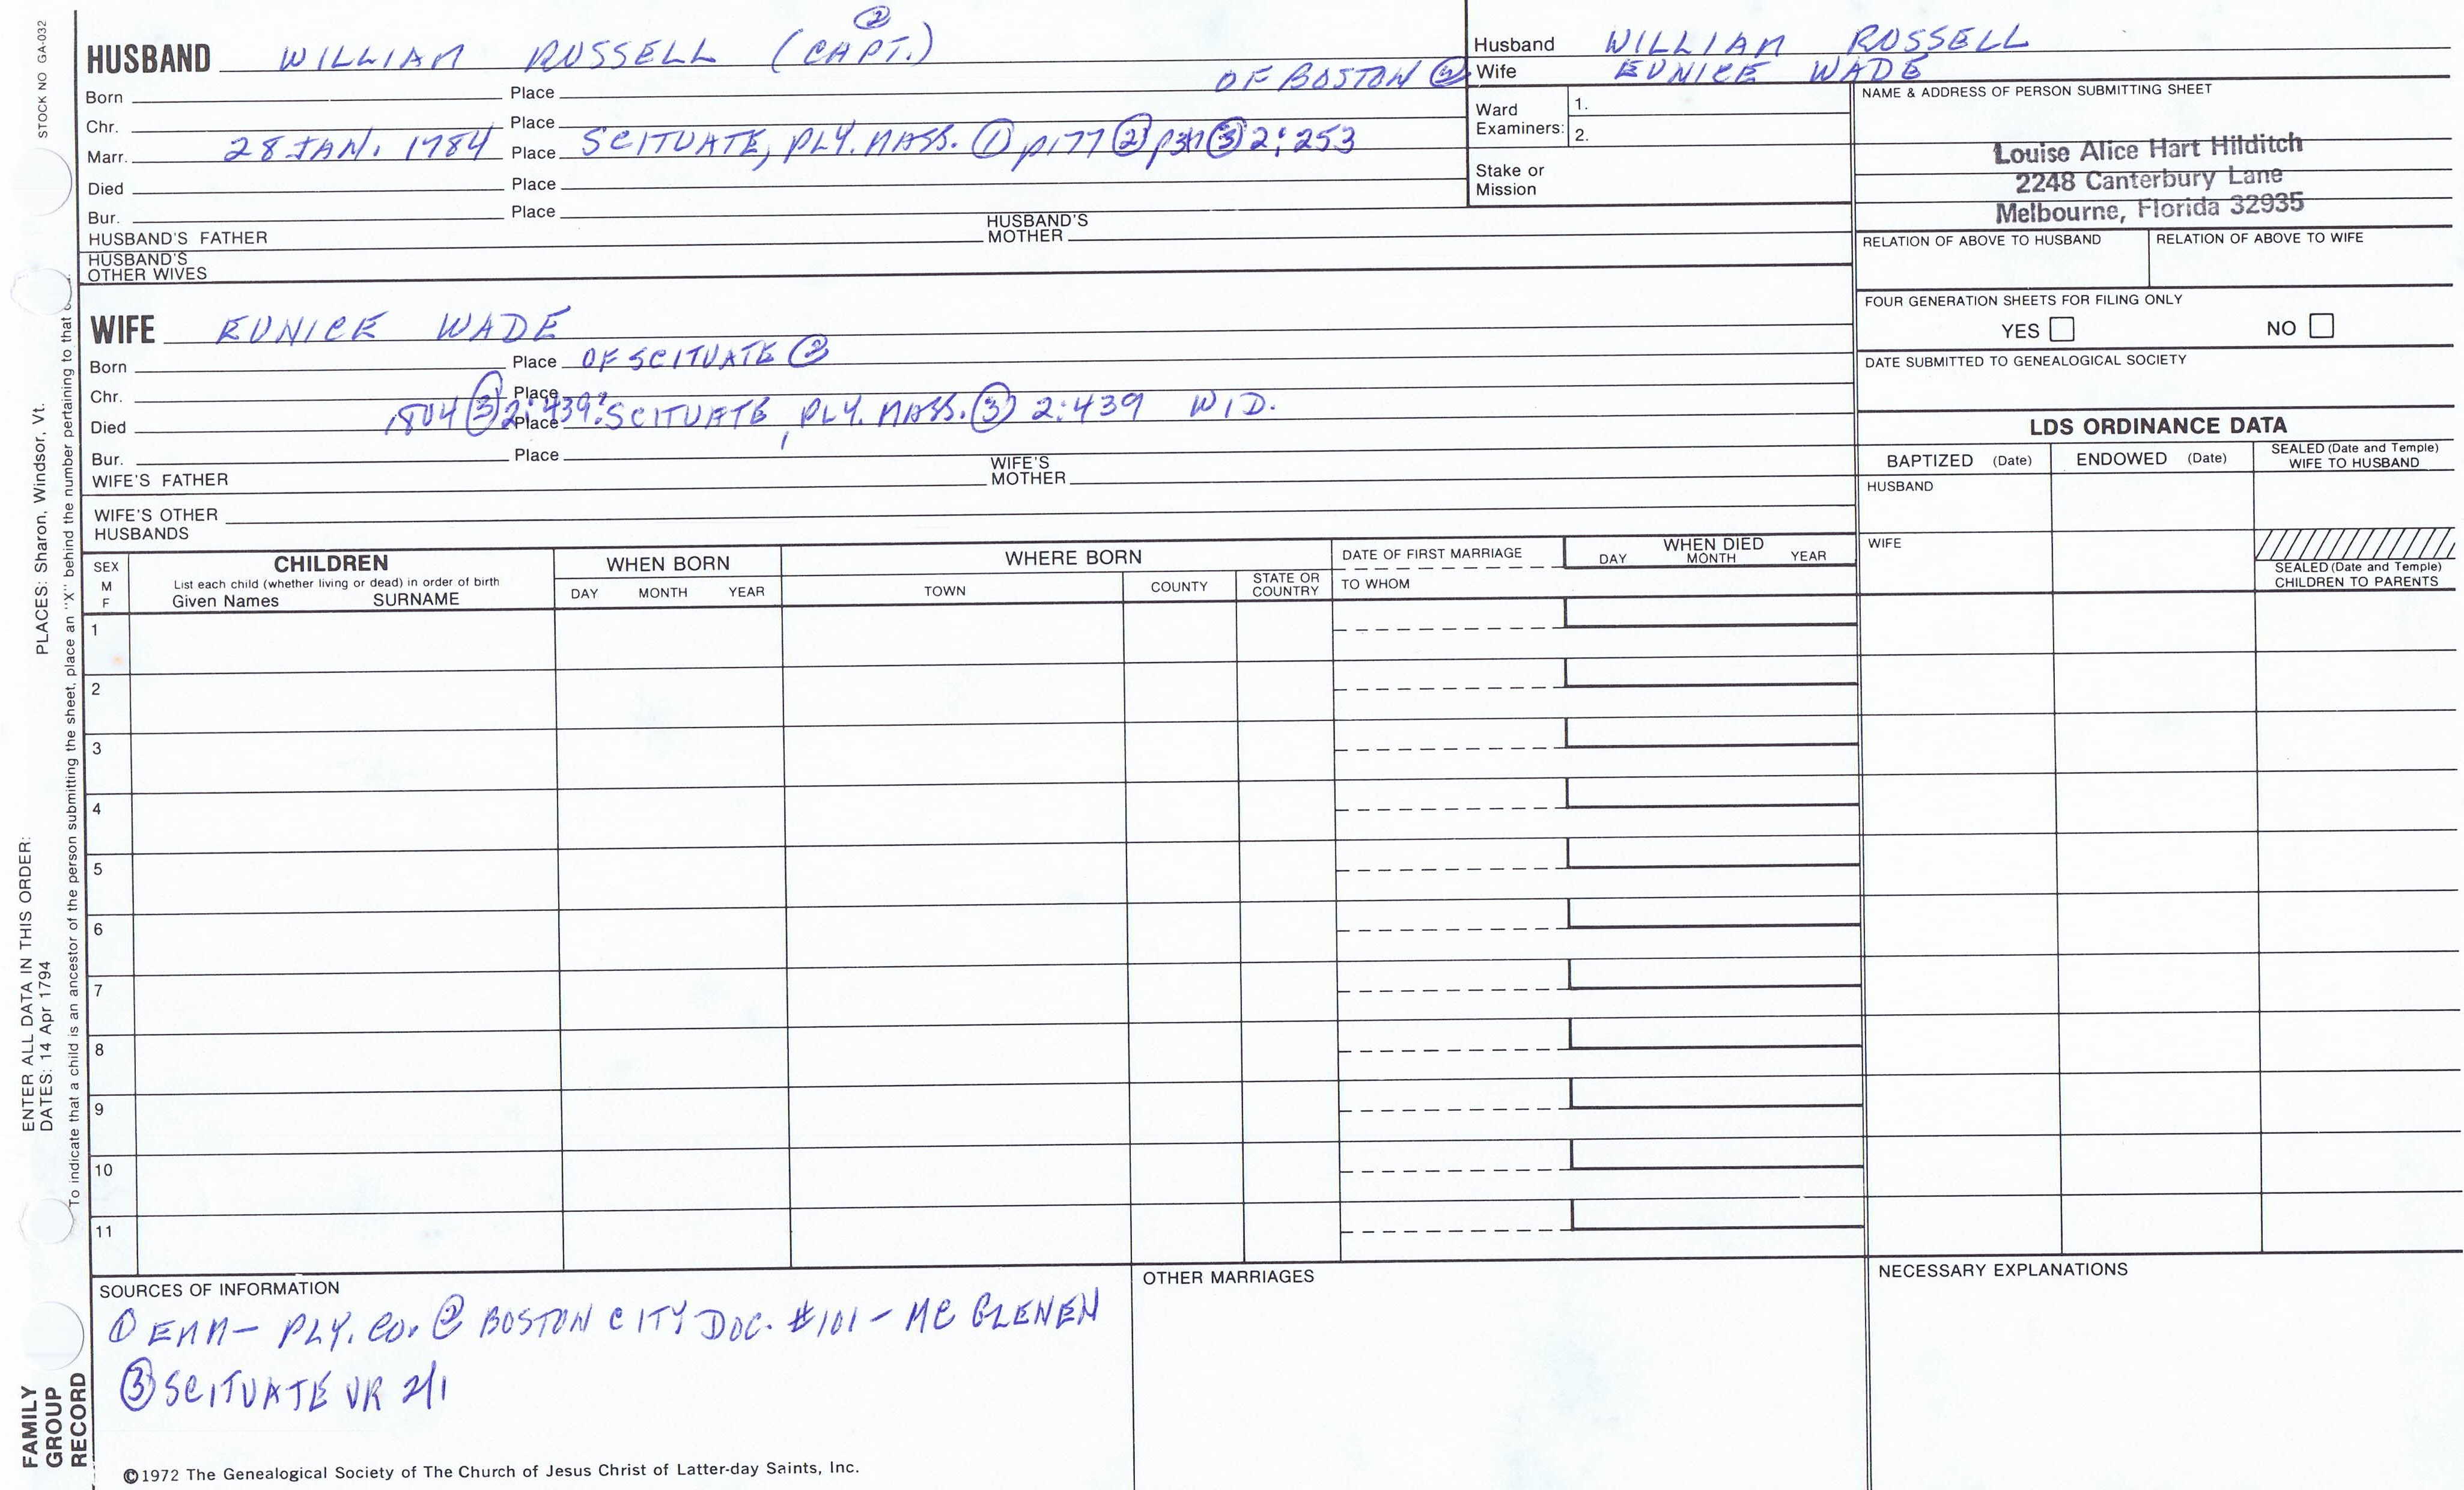 STOCK NO GA-032
HUSBAND WILLIAM RUSSELL (CAPT.) ②
OF BOSTON ②
Born Place
Chr. Place
Marr. 28 JAN. 1784 Place SCITUATE, PLY. MASS. ① p177 ② ③ 2:253
Died Place
Bur. Place
HUSBAND'S FATHER HUSBAND'S MOTHER
HUSBAND'S OTHER WIVES
Husband WILLIAM RUSSELL
Wife EUNICE WADE
Ward Examiners: 1.
2.
Stake or Mission
NAME & ADDRESS OF PERSON SUBMITTING SHEET
Louise Alice Hart Hilditch
2248 Canterbury Lane
Melbourne, Florida 32935
RELATION OF ABOVE TO HUSBAND RELATION OF ABOVE TO WIFE
FOUR GENERATION SHEETS FOR FILING ONLY
YES NO
DATE SUBMITTED TO GENEALOGICAL SOCIETY
WIFE EUNICE WADE
Born Place OF SCITUATE ②
Chr. Place
Died 1804 ③ 2:439 Place SCITUATE, PLY. MASS. ③ 2:439 WID.
Bur. Place
WIFE'S FATHER WIFE'S MOTHER
WIFE'S OTHER HUSBANDS
LDS ORDINANCE DATA
BAPTIZED (Date) ENDOWED (Date) SEALED (Date and Temple) WIFE TO HUSBAND
HUSBAND
WIFE
SEALED (Date and Temple) CHILDREN TO PARENTS
SEX M F
CHILDREN
List each child (whether living or dead) in order of birth
Given Names SURNAME
WHEN BORN
DAY MONTH YEAR
WHERE BORN
TOWN COUNTY STATE OR COUNTRY
DATE OF FIRST MARRIAGE
TO WHOM
WHEN DIED
DAY MONTH YEAR
1
2
3
4
5
6
7
8
9
10
11
SOURCES OF INFORMATION
① EMM- PLY. CO. ② BOSTON CITY DOC. #101 - MC GLENEN
③ SCITUATE VR 2/1
OTHER MARRIAGES
NECESSARY EXPLANATIONS
©1972 The Genealogical Society of The Church of Jesus Christ of Latter-day Saints, Inc.
FAMILY GROUP RECORD
ENTER ALL DATA IN THIS ORDER:
DATES: 14 Apr 1794 PLACES: Sharon, Windsor, Vt.
To indicate that a child is an ancestor of the person submitting the sheet, place an "X" behind the number pertaining to that